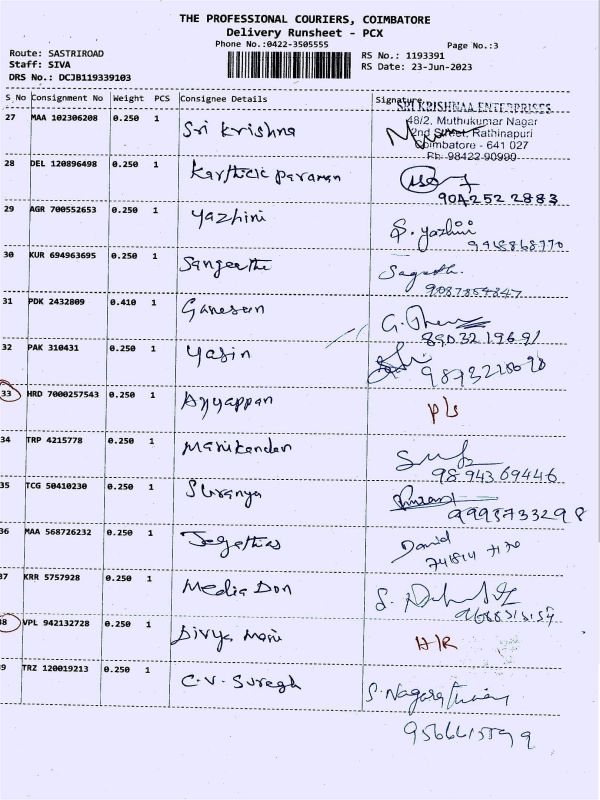 THE PROFESSIONAL COURIERS, COIMBATORE
Delivery Runsheet - PCX
Phone No.:0422-3505555
Page No.:3
Route: SASTRIROAD
RS No.: 1193391
Staff: SIVA
RS Date: 23-Jun-2023
DRS No.: DCJB119339103
S_No Consignment No Weight PCS Consignee Details Signature
SRI KRISHNAA ENTERPRISES
27 MAA 102306208 0.250 1 Sri Krishna
48/2, Muthukumar Nagar
2nd Street, Rathinapuri
Coimbatore - 641 027
Ph: 98422 90990
28 DEL 120896498 0.250 1 Karthick Paraman
904252 2883
29 AGR 700552653 0.250 1 Yazhini S. Yazhini
30 KUR 694963695 0.250 1 Sangeetha
9087854347
31 PDK 2432809 0.410 1 Ganesan
89032 19691
32 PAK 310431 0.250 1 Yasin
33 HRD 7000257543 0.250 1 Ayyappan P/s
34 TRP 4215778 0.250 1 Manikandan
98943 69446
35 TCG 50410230 0.250 1 Sharanya
36 MAA 568726232 0.250 1 David
37 KRR 5757928 0.250 1 Media Don
38 VPL 942132728 0.250 1 Divya Mani H/R
39 TRZ 120019213 0.250 1 C.V. Suresh